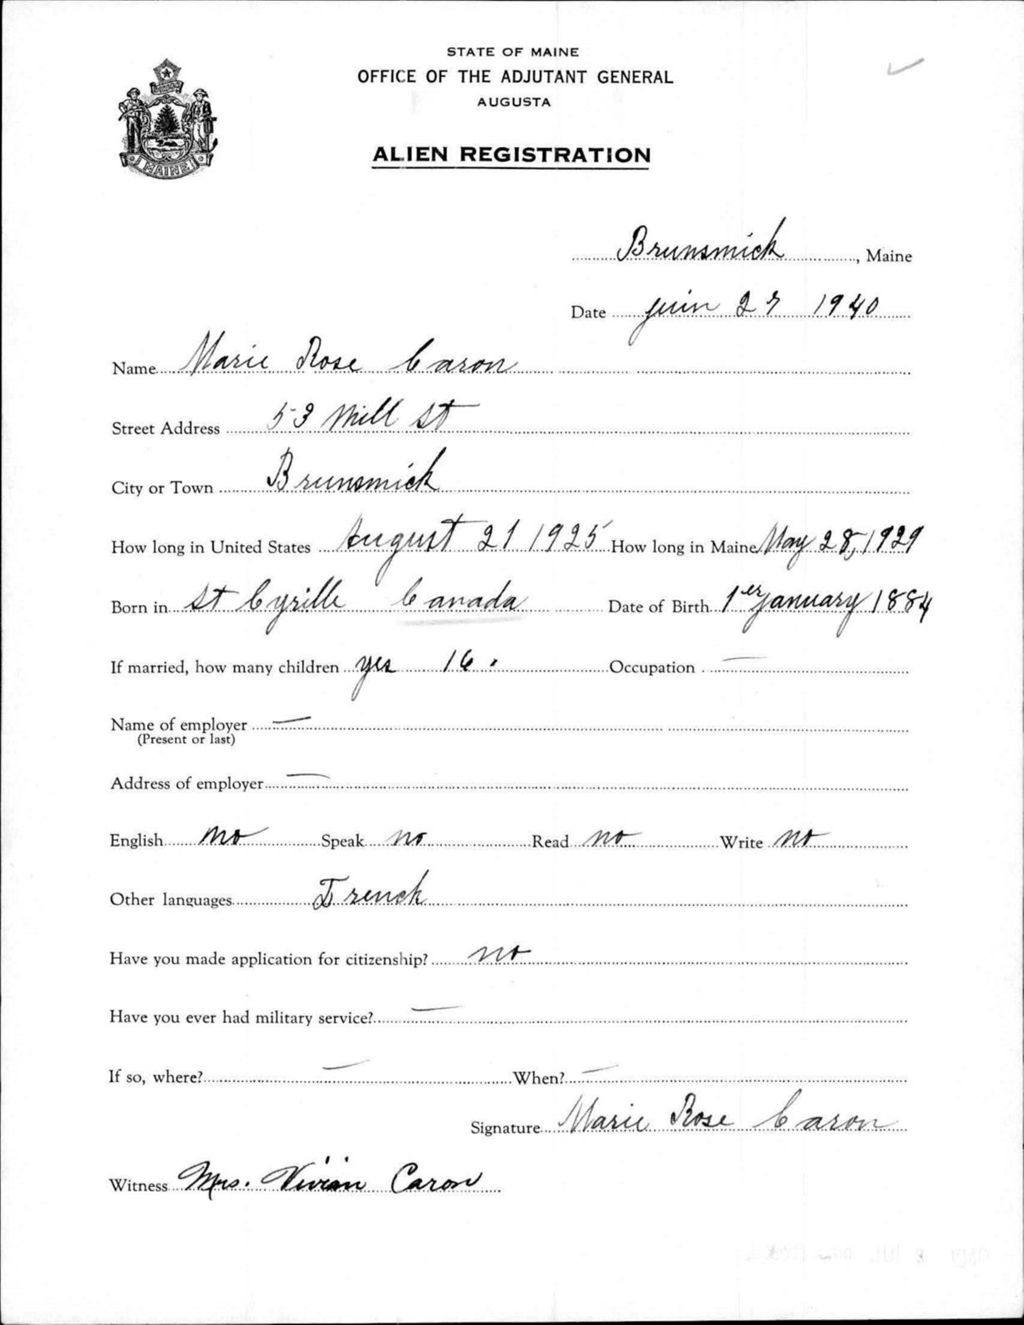 STATE OF MAINE
OFFICE OF THE ADJUTANT GENERAL
AUGUSTA
ALIEN REGISTRATION
MAINE
Brunswick, Maine
Date juin 27 1940
Name Marie Rose Caron
Street Address 53 Mill St
City or Town Brunswick
How long in United States August 21 1925 How long in Maine May 28, 1929
Born in St Cyrille Canada Date of Birth 1er january 1884
If married, how many children yes 16. Occupation —
Name of employer —
(Present or last)
Address of employer —
English no Speak no Read no Write no
Other languages French
Have you made application for citizenship? no
Have you ever had military service? —
If so, where? — When? —
Signature Marie Rose Caron
Witness Mrs. Vivian Caron